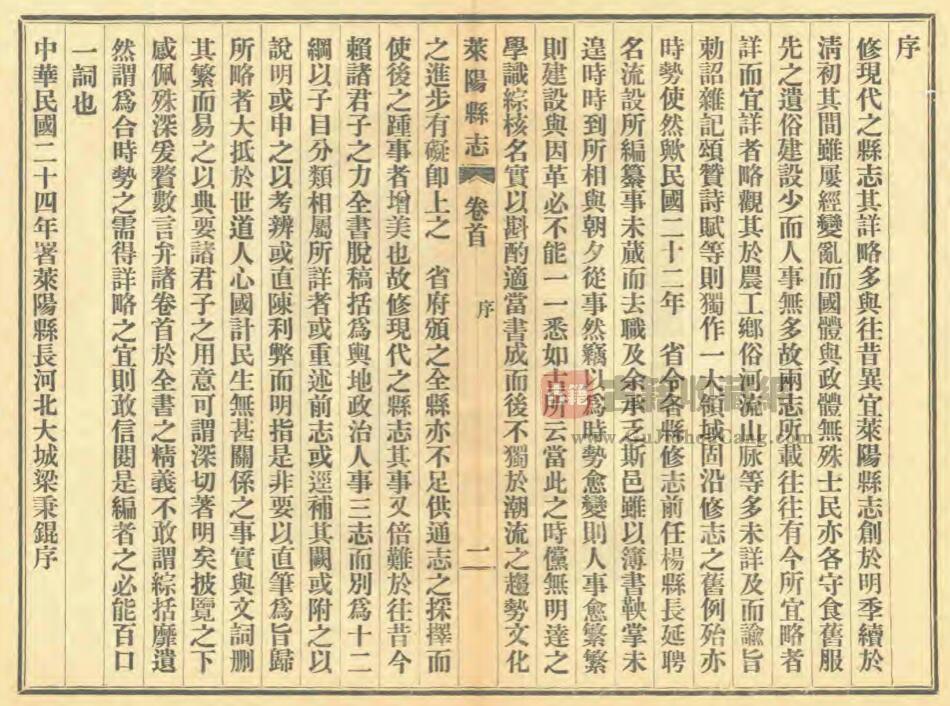 序
修現代之縣志其詳略多與往昔異宜萊陽縣志創於明季續於
淸初其間雖屢經變亂而國體與政體無殊士民亦各守食舊服
先之遺俗建設少而人事無多故兩志所載往往有今所宜略者
詳而宜詳者略觀其於農工鄉俗河流山脉等多未詳及而諭旨
勅詔雜記頌贊詩賦等則獨作一大領域固沿修志之舊例殆亦
時勢使然歟民國二十二年 省令各縣修志前任楊縣長延聘
名流設所編纂事未蕆而去職及余承乏斯邑雖以簿書鞅掌未
遑時時到所相與朝夕從事然竊以爲時勢愈變則人事愈繁繁
則建設與因革必不能一一悉如古所云當此之時儻無明達之
學識綜核名實以斟酌適當書成而後不獨於潮流之趨勢文化
萊陽縣志 卷首 序 二
之進步有礙卽上之 省府頒之全縣亦不足供通志之採擇而
使後之踵事者增美也故修現代之縣志其事又倍難於往昔今
賴諸君子之力全書脫稿括爲輿地政治人事三志而別爲十二
綱以子目分類相屬所詳者或重述前志或逕補其闕或附之以
說明或申之以考辨或直陳利弊而明指是非要以直筆爲旨歸
所略者大抵於世道人心國計民生無甚關係之事實與文詞刪
其繁而易之以典要諸君子之用意可謂深切著明矣披覽之下
感佩殊深爰贅數言弁諸卷首於全書之精義不敢謂綜括靡遺
然謂爲合時勢之需得詳略之宜則敢信閱是編者之必能百口
一詞也
中華民國二十四年署萊陽縣長河北大城梁秉錕序
古籍收藏網
www.GuJiShouCang.com